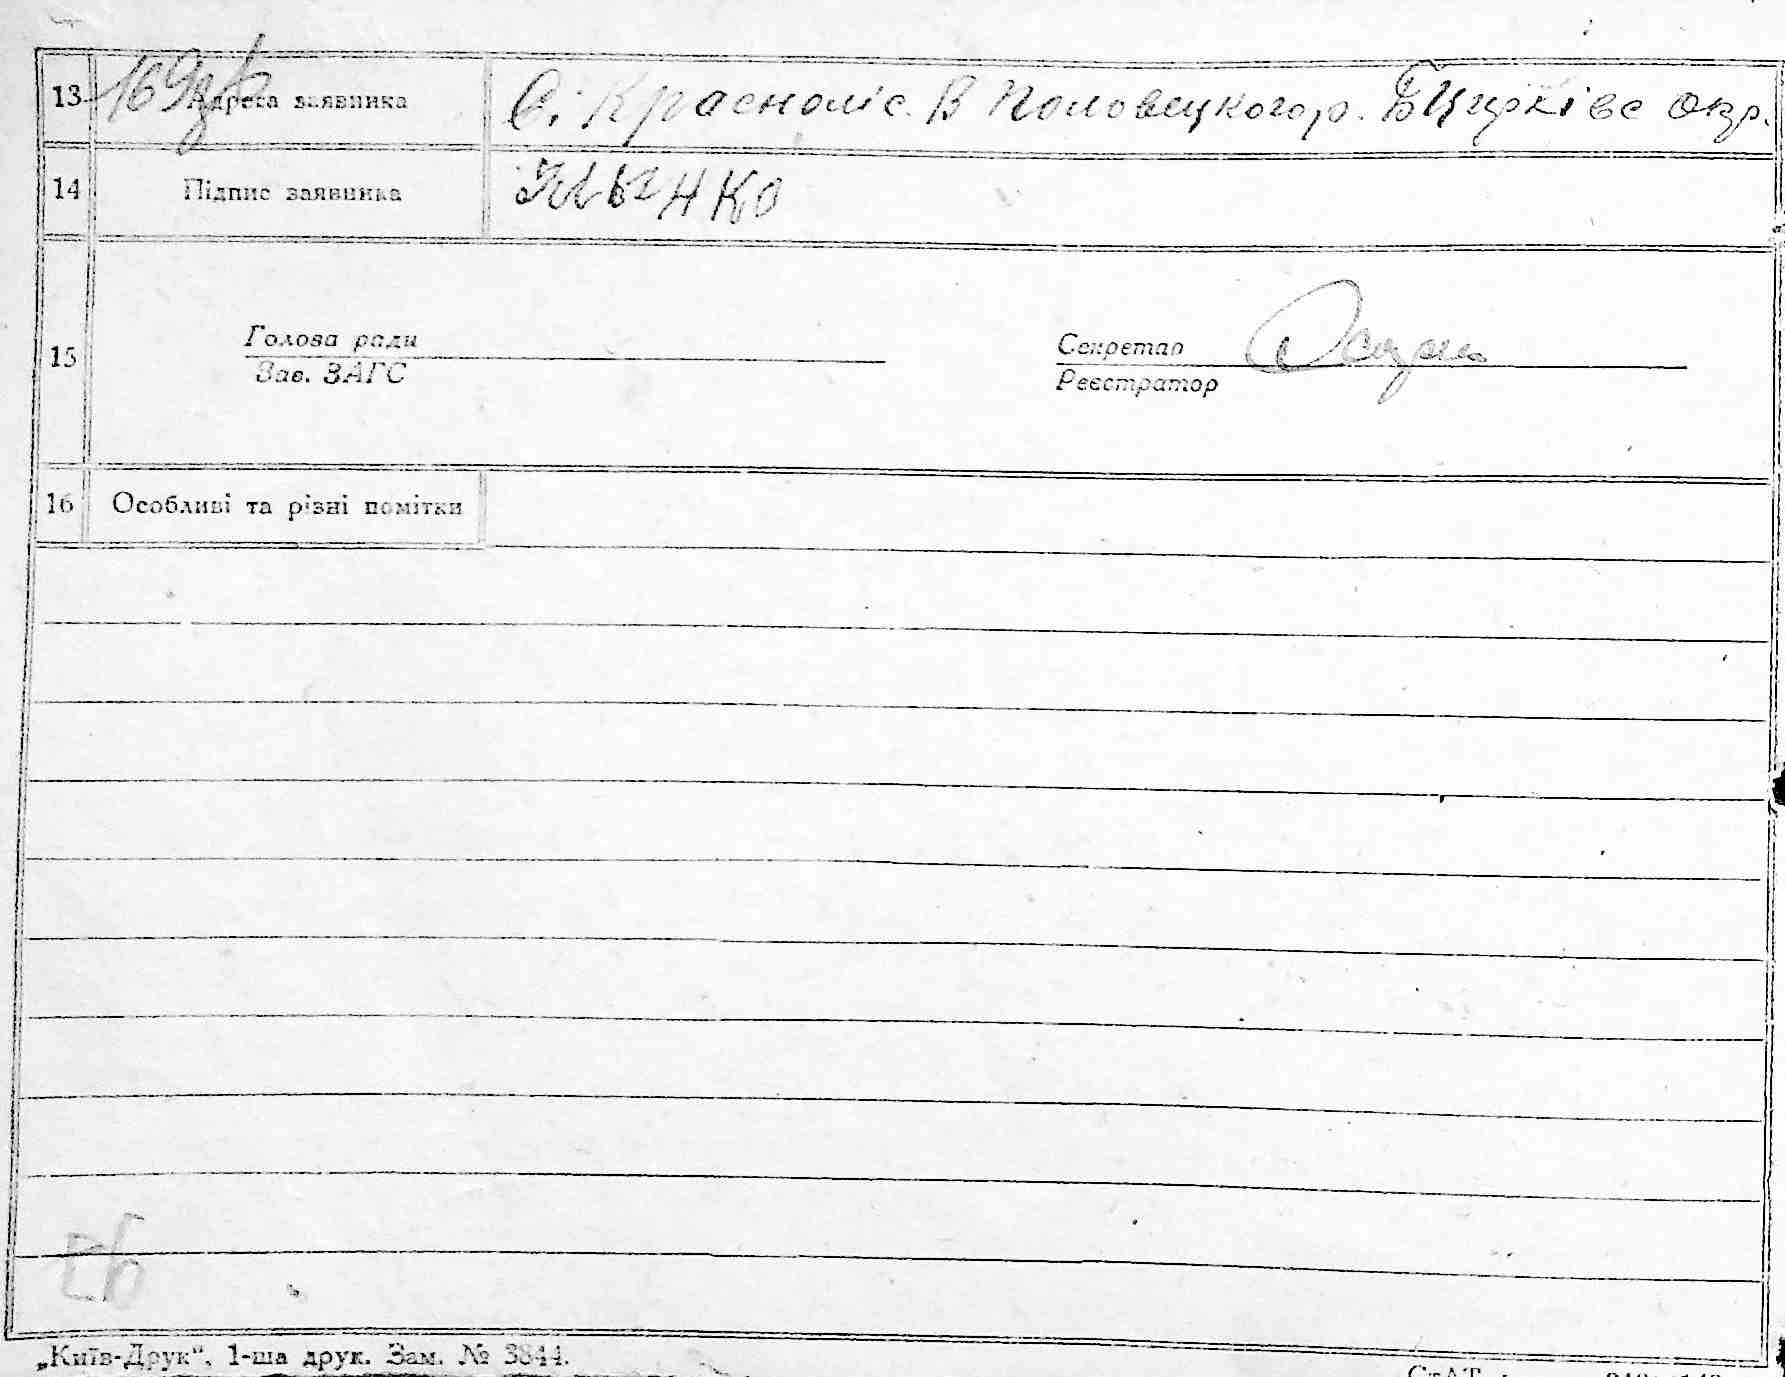 13 169зв Адреса заявника С. Красноліс. В Половецкого р. БЦирківс окр.
14 Підпис заявника
15 Голова ради Секретар
Зав. ЗАГС Реєстратор
16 Особливі та різні помітки
„Київ-Друк“, 1-ша друк. Зам. № 3844.